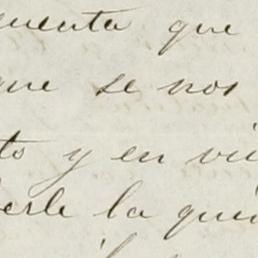 cuenta que
que se nos
to y en vi
erle la qui